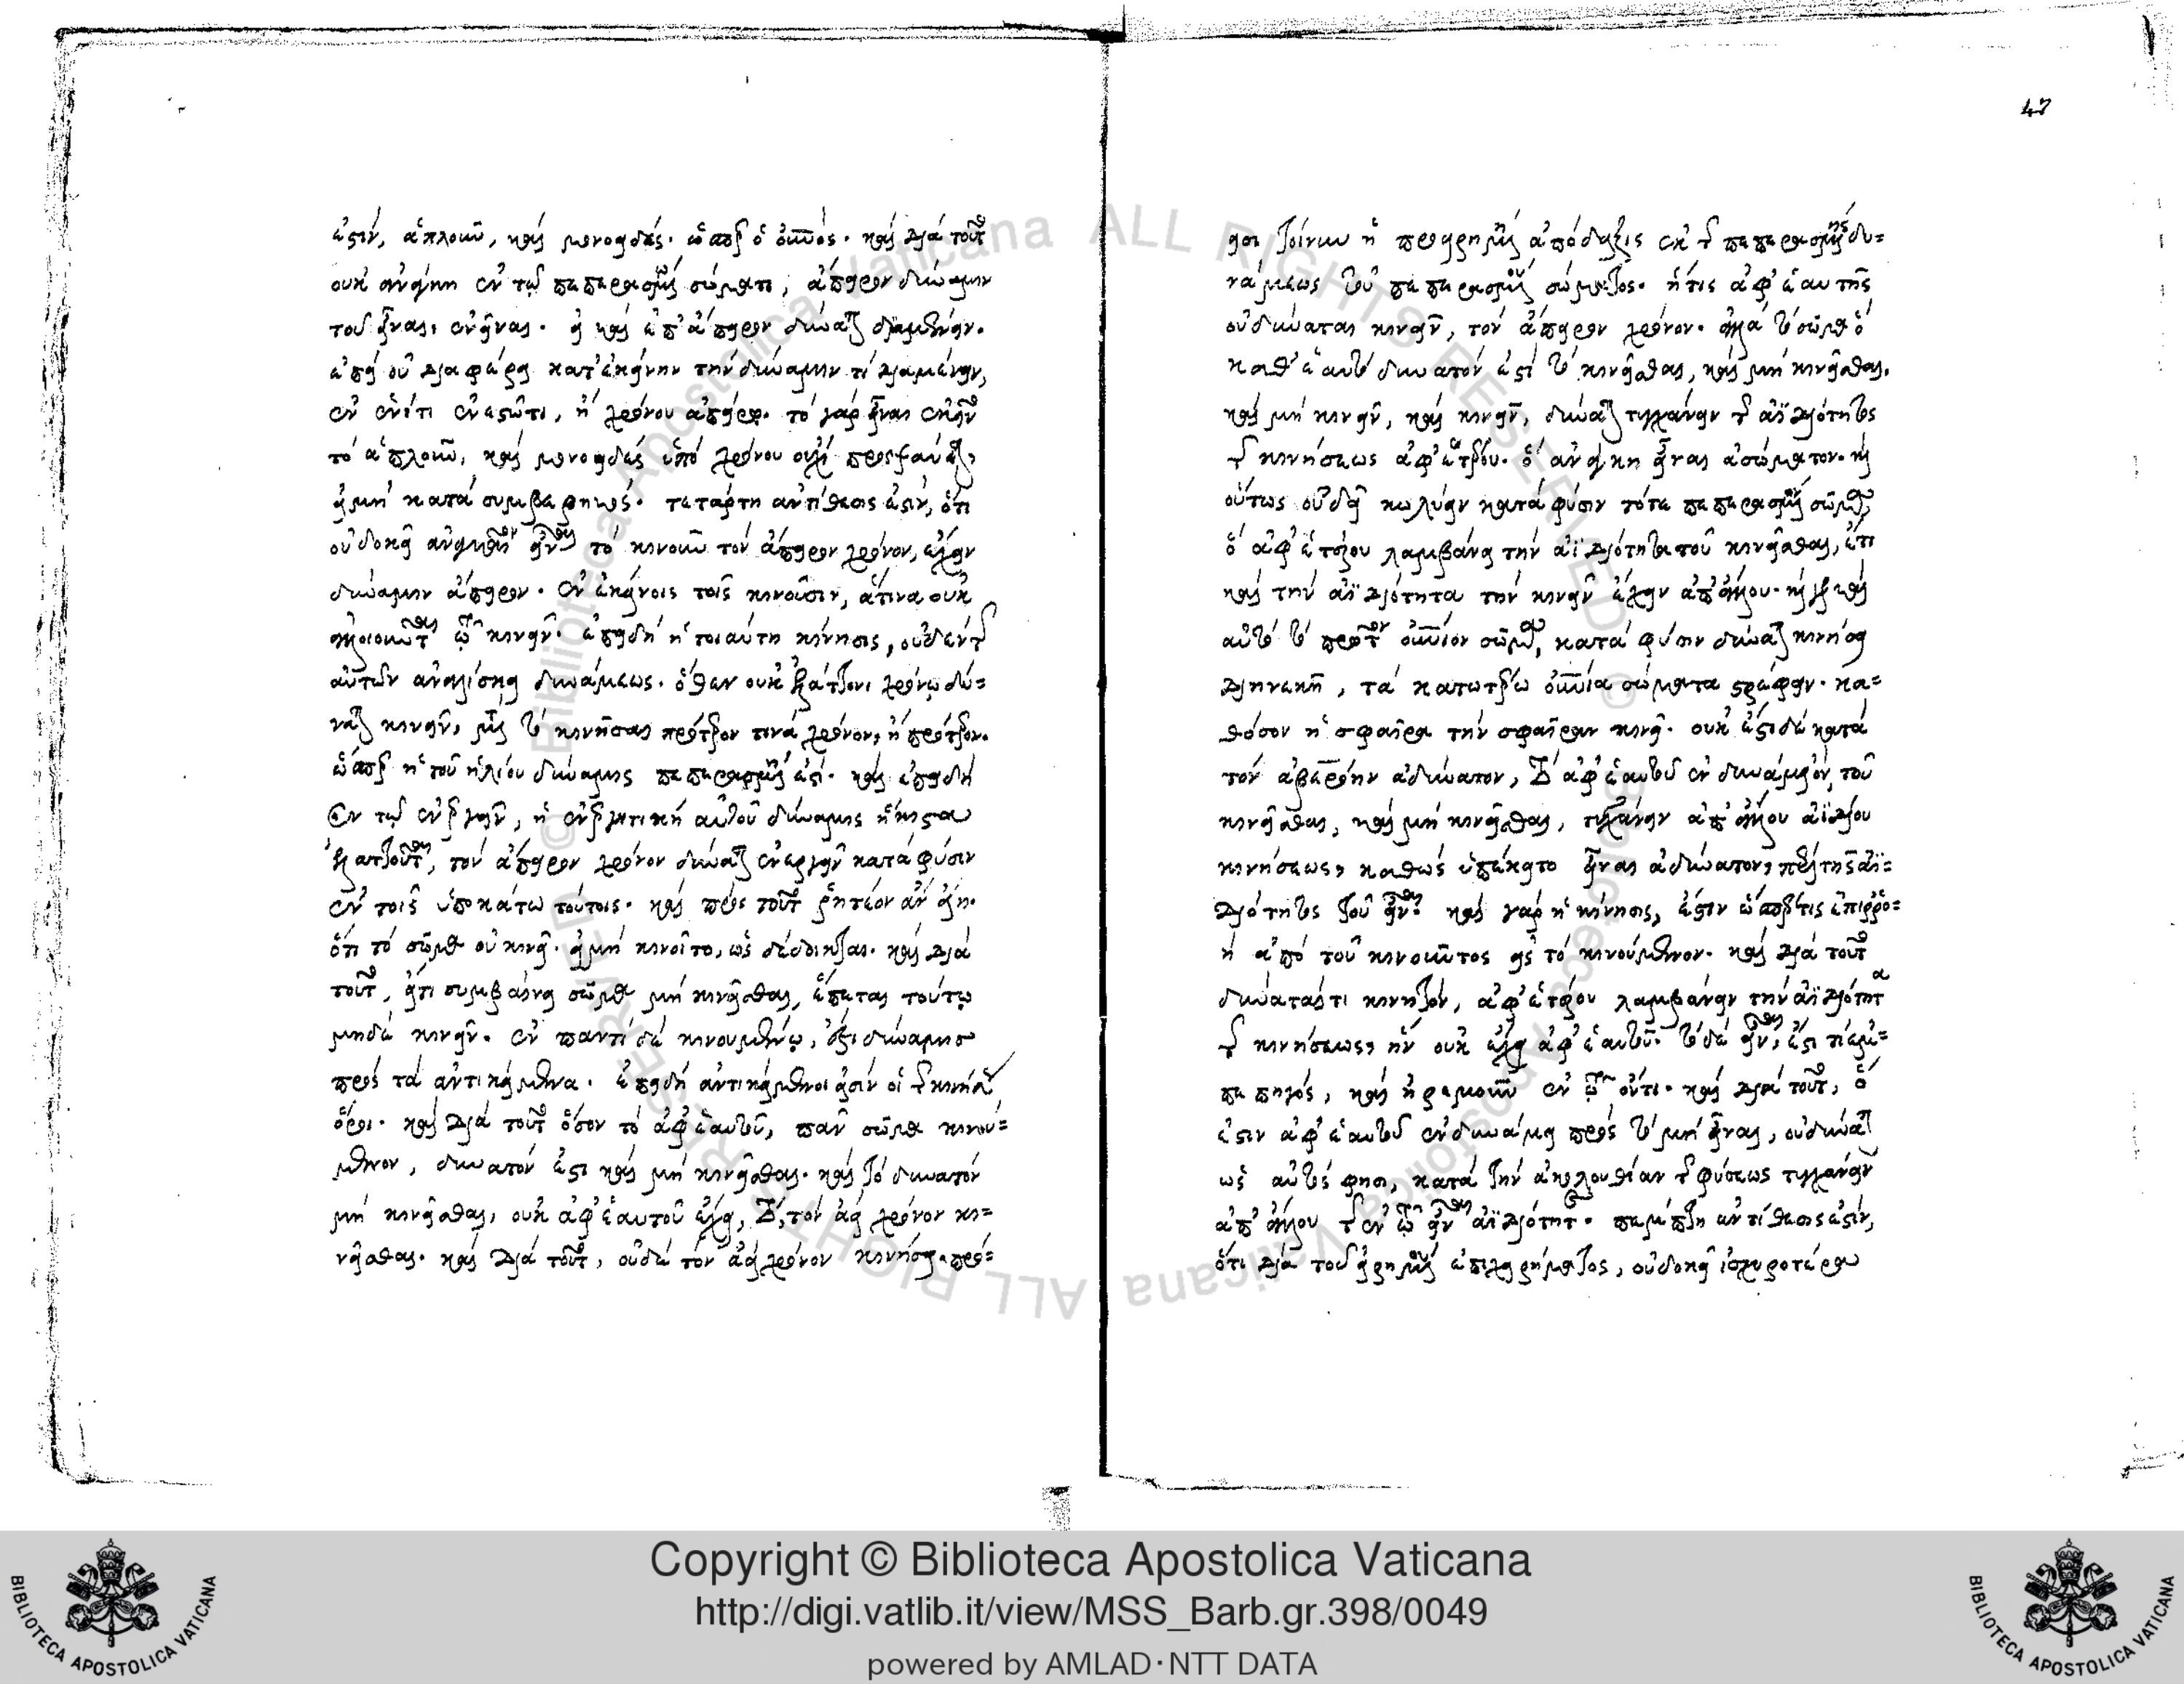 47
ἐστὶν, ἁπλοῦν, καὶ μονοειδές. ὥσπερ ὁ οὐνός. καὶ διὰ τοῦτο
οὐκ ἀνάγκη ἐν τῷ πεπερασμένῳ σώματι, ἄπειρον δύναμιν
τοῦ εἶναι, ἐνεῖναι. εἰ καὶ ἐπ' ἄπειρον δύναται διαμένειν.
ἐπεὶ οὐ διαφέρει κατ' ἐκείνην τὴν δύναμιν τὶ διαμένειν,
ἐν ἑνί τι ἐνεστῶτι, ἢ χρόνου ἀπείρῳ. τὸ γὰρ εἶναι ἐκεῖνο
τὸ ἁπλοῦν, καὶ μονοειδὲς ὑπὸ χρόνου οὐχὶ
εἰ μὴ κατὰ συμβεβηκός. τετάρτη ἀντίθεσις ἐστὶν, ὅτι
οὐ δοκεῖ ἀναγκαῖον εἶναι τὸ κινοῦν τὸν ἄπειρον χρόνον, ἔχειν
δύναμιν ἄπειρον. ἐν ἐκείνοις τοῖς κινοῦσιν, ἅτινα οὐκ
ἀλλοιοῦνται τῷ κινεῖν. ἐπειδὴ ἡ τοιαύτη κίνησις, οὐδὲν τῆς
αὐτῶν ἀναλίσκει δυνάμεως. ὅθεν οὐκ ἐλάττονι χρόνῳ δύ=
ναται κινεῖν, μετὰ τὸ κινῆσαι πρότερόν τινα χρόνον, ἢ πρότερον.
ὥσπερ ἡ τοῦ ἡλίου δύναμις πεπερασμένη ἐστί. καὶ ἐπειδὴ
ἐν τῷ ἐνεργεῖν, ἡ ἐνεργητικὴ αὐτοῦ δύναμις ἥκιστα
ἐλαττοῦται, τὸν ἄπειρον χρόνον δύναται ἐνεργεῖν κατὰ φύσιν
ἐν τοῖς ὑποκάτω τούτοις. καὶ πρὸς τοῦτο ῥητέον ἂν εἴη.
ὅτι τὸ σῶμα οὐ κινεῖ. εἰ μὴ κινοῖτο, ὡς δέδεικται. καὶ διὰ
τοῦτο, εἴ τι συμβαίνει σῶμα μὴ κινεῖσθαι, ἕπεται τούτῳ
μηδὲ κινεῖν. ἐν παντὶ δὲ κινουμένῳ, ἐστὶ δύναμις
πρὸς τὰ ἀντικείμενα. ἐπειδὴ ἀντικείμενοι εἰσὶν οἱ τῆς κινήσεως
ὅροι. καὶ διὰ τοῦτο ὅσον τὸ ἀφ' ἑαυτοῦ, πᾶν σῶμα κινού=
μενον, δυνατόν ἐστι καὶ μὴ κινεῖσθαι. καὶ τὸ δυνατὸν
μὴ κινεῖσθαι, οὐκ ἀφ' ἑαυτοῦ ἔχει, τὸν ἀεὶ χρόνον κι=
νεῖσθαι. καὶ διὰ τοῦτο, οὐδὲ τὸν ἀεὶ χρόνον κινήσει. προ=
εισι τοίνυν ἡ προειρημένη ἀπόδειξις ἐκ τῆς πεπερασμένης δυ=
νάμεως τοῦ πεπερασμένου σώματος. ἥτις ἀφ' ἑαυτῆς
οὐ δύναται κινεῖν, τὸν ἄπειρον χρόνον. ἀλλὰ τὸ σῶμα ὃ
καθ' ἑαυτὸ δυνατόν ἐστι τὸ κινεῖσθαι, καὶ μὴ κινεῖσθαι,
καὶ μὴ κινεῖν, καὶ κινεῖν, δύναται τυγχάνειν τῆς ἀϊδιότητος
τῆς κινήσεως ἀφ' ἑτέρου. ὃ ἀνάγκη εἶναι ἀσώματον. καὶ
οὕτως οὐδὲν κωλύειν κατὰ φύσιν τότε πεπερασμένον σῶμα,
ὃ ἀφ' ἑτέρου λαμβάνει τὴν ἀϊδιότητα τοῦ κινεῖσθαι, ἔτι
καὶ τὴν ἀϊδιότητα τὴν κινεῖν ἔχειν ἀπ' ἄλλου.
αὐτὸ τὸ πρῶτον οὐνίον σῶμα, κατὰ φύσιν δύναται κινήσει
διηνεκῇ, τὰ κατωτέρω οὐνία σώματα στρέφειν. κα=
θόσον ἡ σφαῖρα τὴν σφαῖραν κινεῖ. οὐκ ἔστι δὲ κατὰ
τὸν ἀβερόην ἀδύνατον, τὸ ἀφ' ἑαυτοῦ ἐν δυνάμει ὂν, τοῦ
κινεῖσθαι, καὶ μὴ κινεῖσθαι, τυγχάνειν ἀπ' ἄλλου ἀϊδίου
κινήσεως, καθὼς ὑπέκειτο εἶναι ἀδύνατον, περὶ τῆς ἀϊ=
διότητος τοῦ εἶναι. καὶ γὰρ ἡ κίνησις, ἐστὶν ὥσπερ τις ἐπιρρο=
ὴ ἀπὸ τοῦ κινοῦντος εἰς τὸ κινούμενον. καὶ διὰ τοῦτο
δύναταί τι κινητὸν, ἀφ' ἑτέρου λαμβάνειν τὴν ἀϊδιότητα
τῆς κινήσεως, ἣν οὐκ ἔχει ἀφ' ἑαυτοῦ. τὸ δὲ εἶναι, ἐστί τι ἐμ=
πεπηγὸς, καὶ ἠρεμοῦν ἐν τῷ ὄντι. καὶ διὰ τοῦτο, ὃ
ἐστιν ἀφ' ἑαυτοῦ ἐν δυνάμει πρὸς τὸ μὴ εἶναι, οὐ δύναται
ὡς αὐτός φησι, κατὰ τὴν ἀκολουθίαν τῆς φύσεως τυγχάνειν
ἀπ' ἄλλου τῆς ἐν τῷ εἶναι ἀϊδιότητος. πέμπτη ἀντίθεσις ἐστὶν,
ὅτι διὰ τοῦ εἰρημένου ἐπιχειρήματος, οὐ δοκεῖ ἰσχυροτέρα